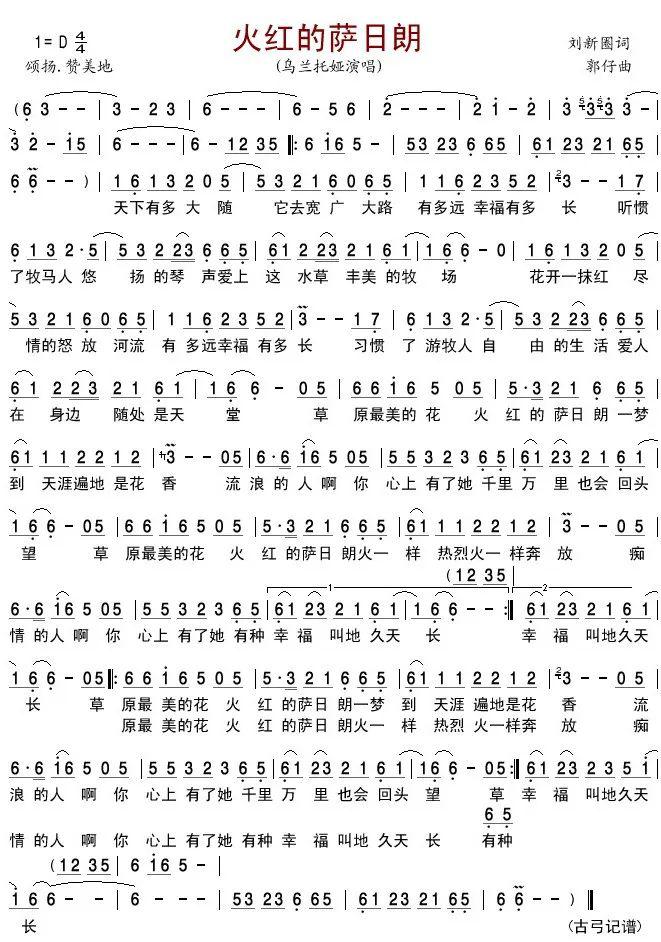 火红的萨日朗
1= D 4/4
颂扬.赞美地
(乌兰托娅演唱)
刘新圈词
郭仔曲
(6 3 - - | 3 - 6 3 | 6 - - - | 6 - 5 6 | 2 - - - | 2 1 - 2 | 3 3 3 - |
3 2 - 15 | 6 - - - | 6 - 12 35 |: 6 16 5 - | 53 23 6 65 | 61 23 21 65 |
6 6 - - ) | 1 6 1 3 2 0 5 | 5 3 2 1 6 0 6 5 | 1 1 6 2 3 5 2 | 3 - - 1 7 |
天下有多 大 随 它去宽 广 大路 有多远 幸福有多 长 听惯
6 1 3 2·5 | 5 3 2 23 6 6 5 | 61 2 23 2 1 61 | 16 6 - 0 | 1 6 1 3 0 5 |
了牧马人 悠 扬的琴 声爱上 这 水草 丰美的牧 场 花开一抹红 尽
5 3 2 1 6 0 6 5 | 1 1 6 2 3 5 2 | 3 - - 1 7 | 6 1 1 3 2·5 | 5 3 2 23 6 6 5 |
情的怒 放 河流 有 多远幸福 有多 长 习惯 了 游牧人 自 由的生 活 爱人
61 2 23 2 1 61 | 16 6 - 05 | 66 16 5 05 | 5·3 2 1 6 6 5 |
在 身边 随处 是天 堂 草 原最美的 花 火 红 的 萨日 朗 一梦
61 1 1 2 2 1 2 | 3 - - 05 | 6·6 16 5 05 | 5 5 3 2 3 6 5 | 61 23 2 1 61 |
到 天涯遍地 是花 香 流 浪 的 人 啊 你 心上 有了她 千里 万 里 也会 回头
16 6 - 05 | 6 6 1 6 5 0 5 | 5·3 2 1 6 6 5 | 61 1 1 2 2 1 2 | 3 - - 0 5 |
望 草 原最美的 花 火 红的萨日 朗火一 样 热烈火一 样奔 放 痴
(12 35 |
6·6 16 5 05 | 5 5 3 2 3 6 5 | 61 23 2 1 61 | 16 6 - - :| 61 23 2 1 61 |
情 的 人 啊 你 心上 有了她 有种 幸 福 叫地 久天 长 幸 福 叫地 久天
16 6 - 05 |: 6 6 1 6 5 0 5 | 5·3 2 1 6 6 5 | 61 1 1 2 2 1 2 | 3 - - 0 5 |
长 草 原最 美的花 火 红 的萨日 朗一梦 到 天涯 遍地是花 香 流
原最 美的花 火 红 的萨日 朗火一 样 热烈 火一样奔 放 痴
6·6 16 5 05 | 5 5 3 2 3 6 5 | 61 23 2 1 61 | 16 6 - 05 :| 61 23 2 3 5 1 |
浪 的 人 啊 你 心上 有了她 千里 万 里 也会 回头 望 草 幸 福 叫地久天
6 5
情 的人 啊 你 心上 有了她 有种 幸 福 叫地久天 长 有种
(12 35 | 6 16 5 - |
16 6 - | - - - - | 53 23 6 65 | 61 23 21 65 | 6 6 - ) ‖
长
(古弓记谱)